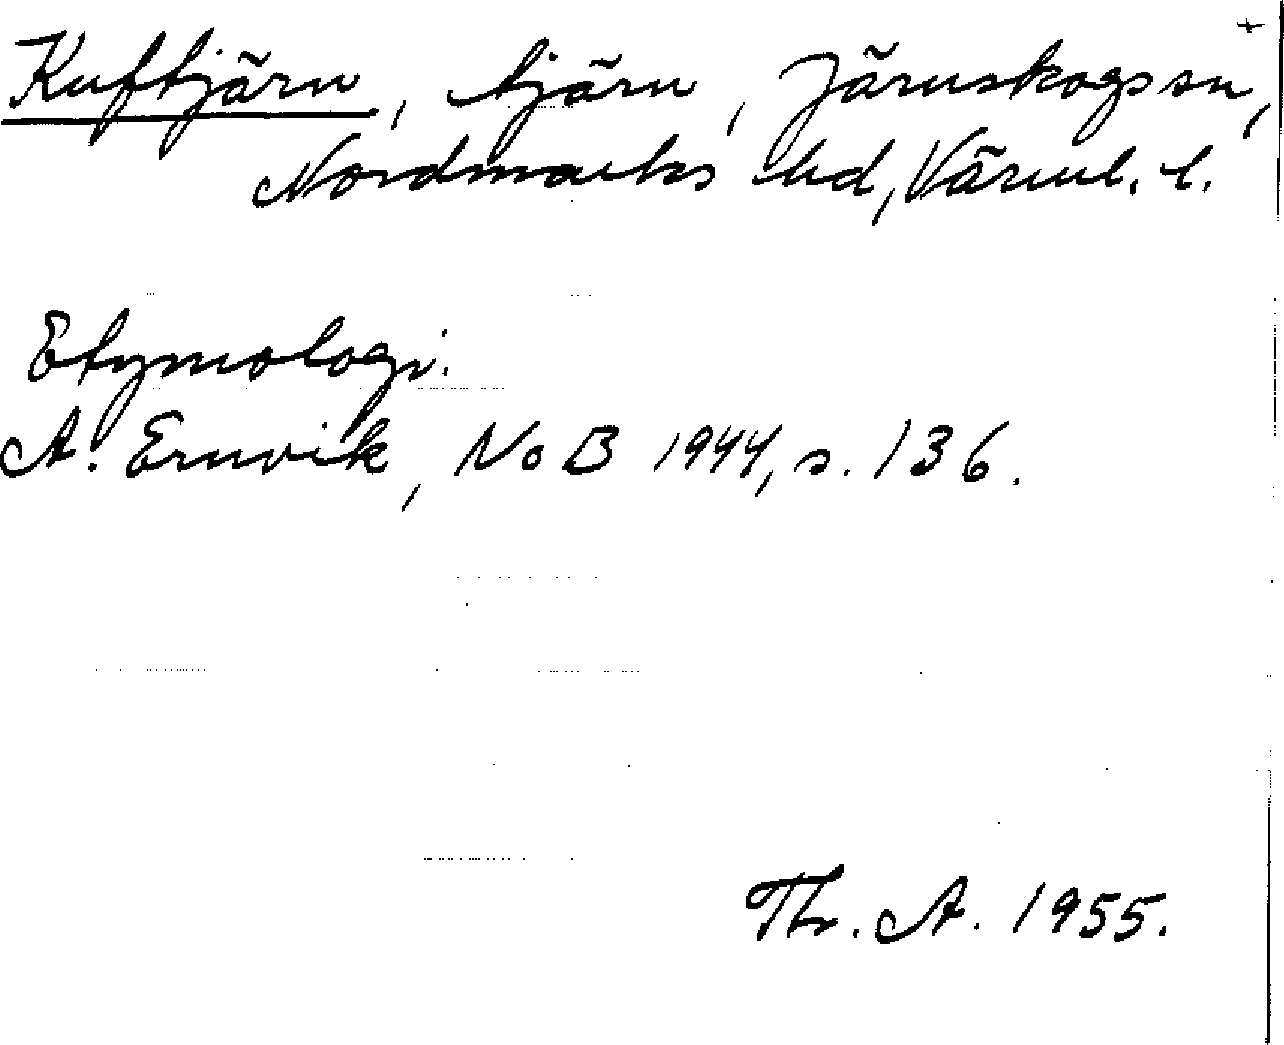 Kuftjärn, tjärn, Järnskogs sn,
Nordmarks hd, Värml. l.
Etymologi.
A. Ernvik, NoB 1944, s. 136.
Th. A. 1955.